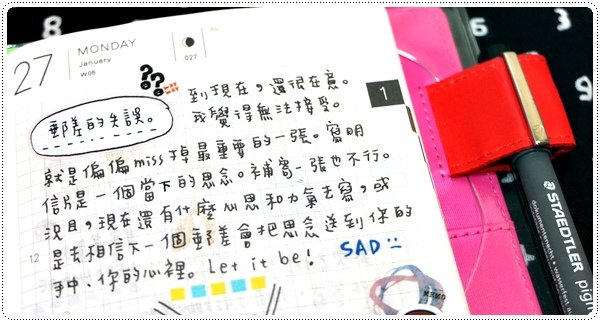 27
MONDAY
January
W05
027
??
到現在，還很在意。
我覺得無法接受。
郵差的失誤。
1
就是偏偏miss掉最重要的一張。寫明
信片是一個當下的思念。補寄一張也不行。
況且，現在還有什麼心思和力氣去寫，或
是去相信下一個郵差會把思念送到你的
手中、你的心裡。Let it be！ SAD
12
STAEDTLER
pigm
dokumentenecht • wasserfest